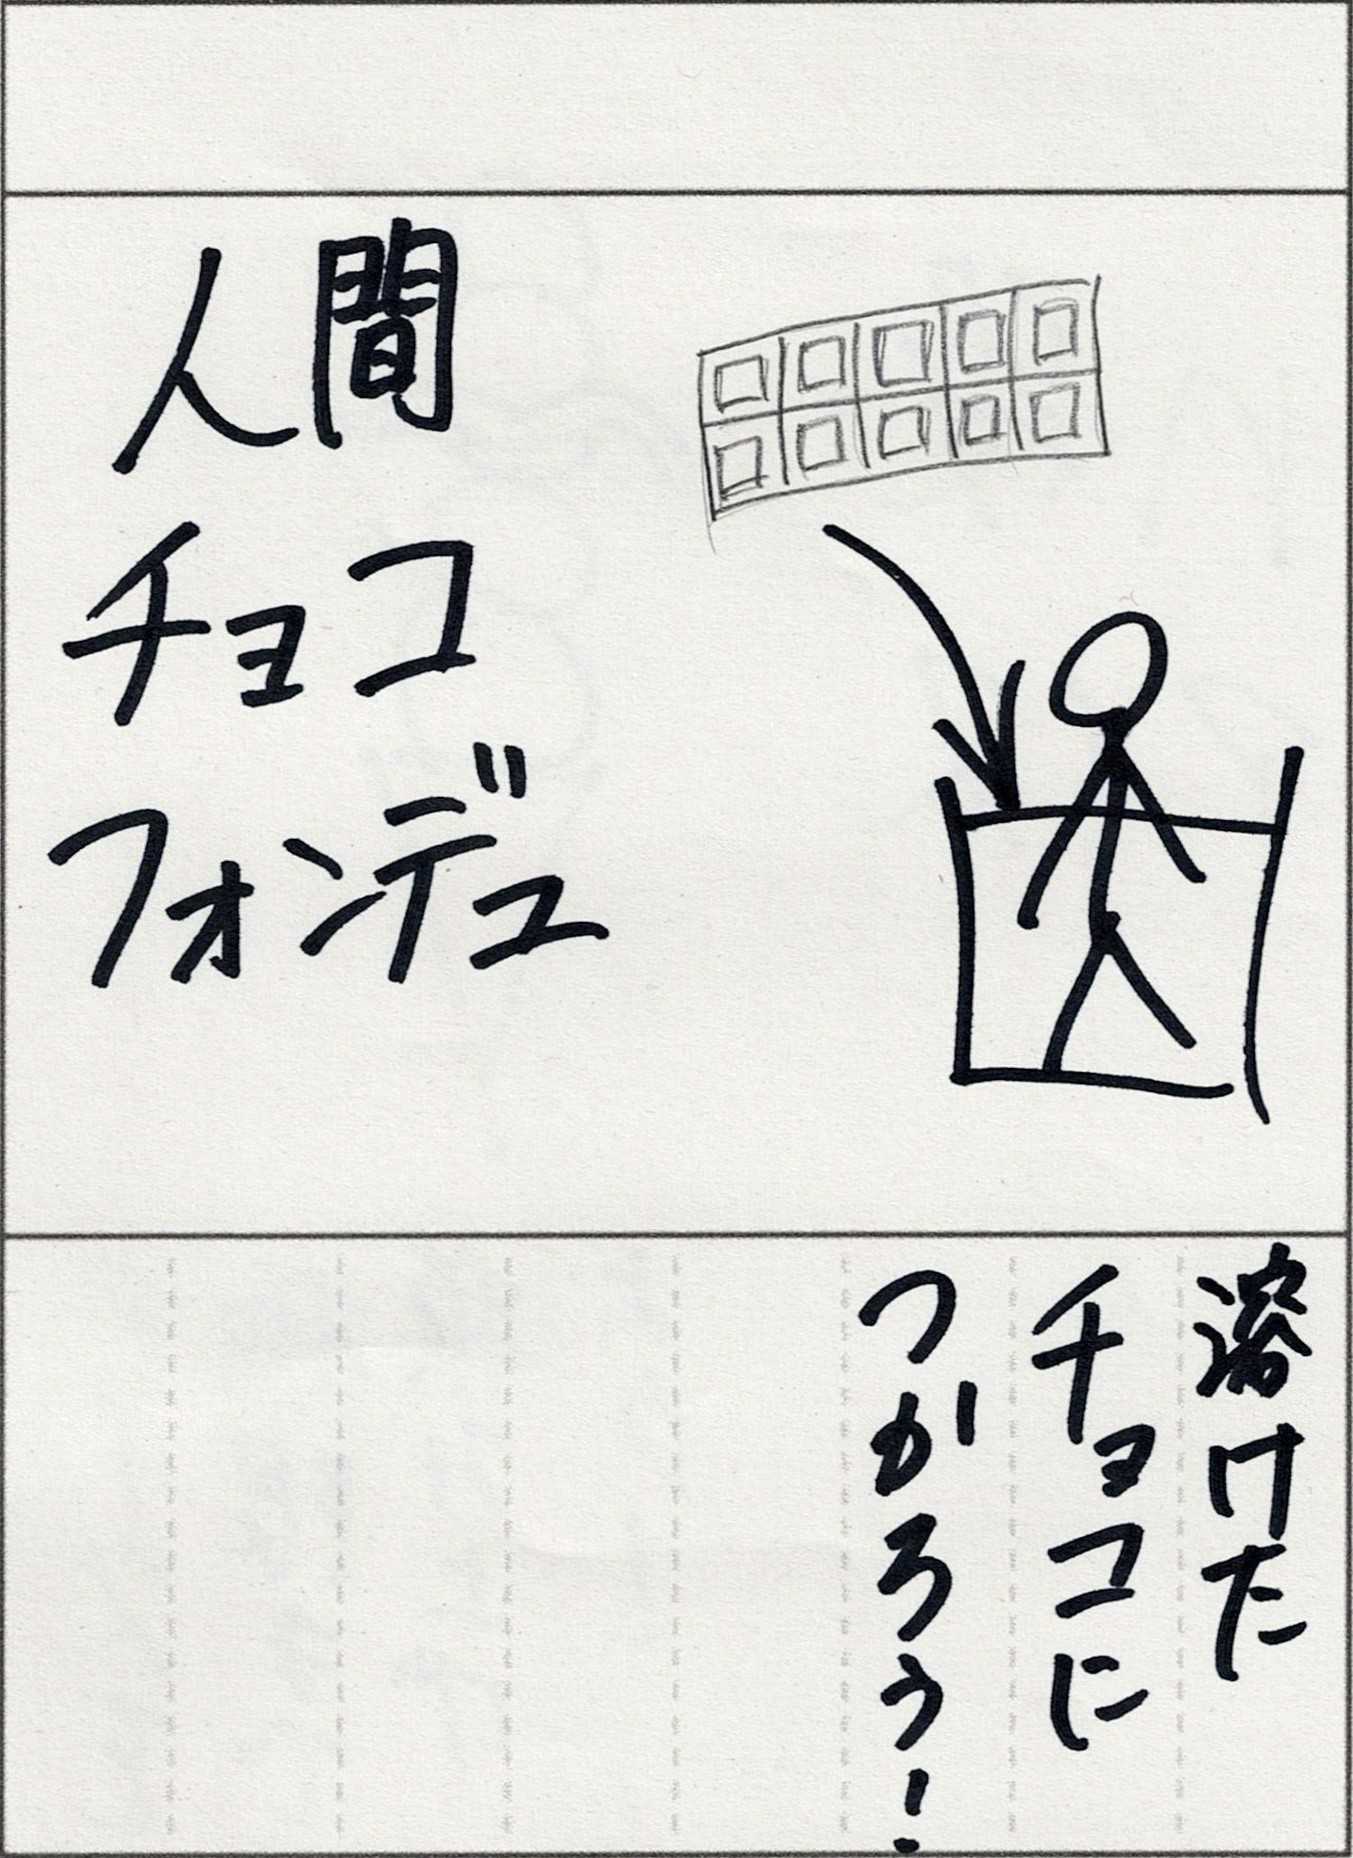 人間
チョコ
フォンデュ
溶けた
チョコに
つかろう！